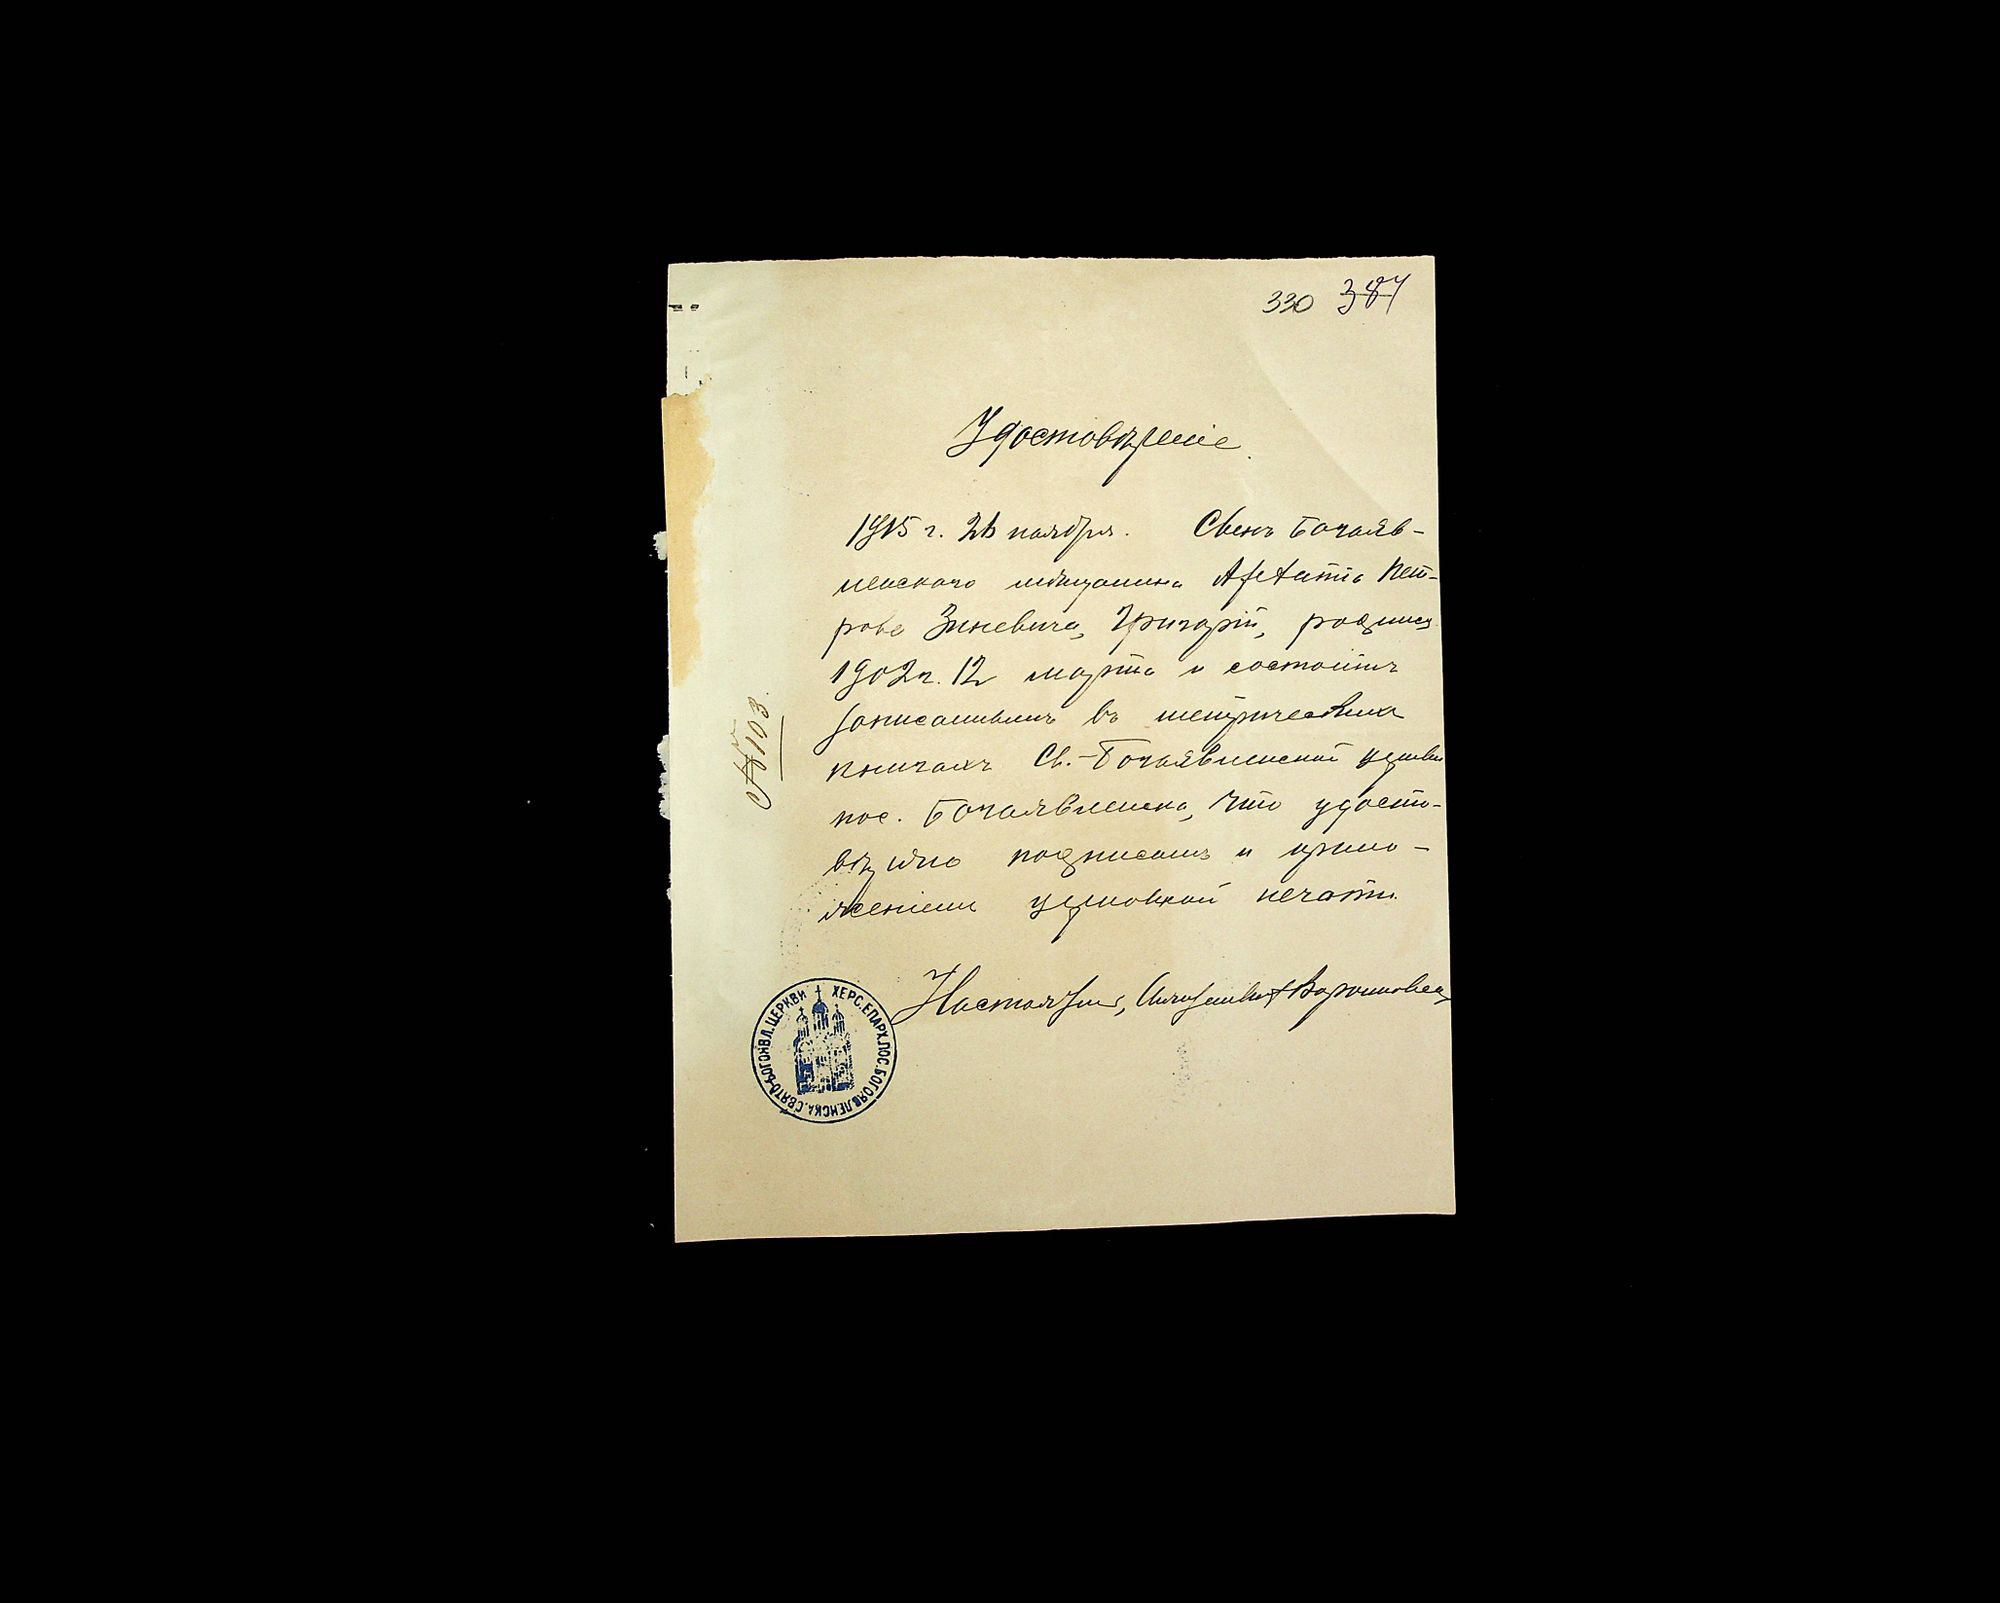 330 387
Удостовѣреніе.
1915 г. 26 ноября. Сынъ Богояв-
ленскаго мѣщанина Петро-
рова Зиневича, Григорій, родился
1902 г. 12 марта и состоитъ
записаннымъ въ метрическихъ
книгахъ Св.-Богоявленской церкви
пос. Богоявленска, что удосто-
вѣряю подписомъ и прило-
женіемъ церковной печати.
Настоятель, Священникъ
№ 103.
ХЕРС. ЕПАРХ. ПОС. БОГОЯВЛЕНСКА. СВЯТО-БОГОЯВЛ. ЦЕРКВИ